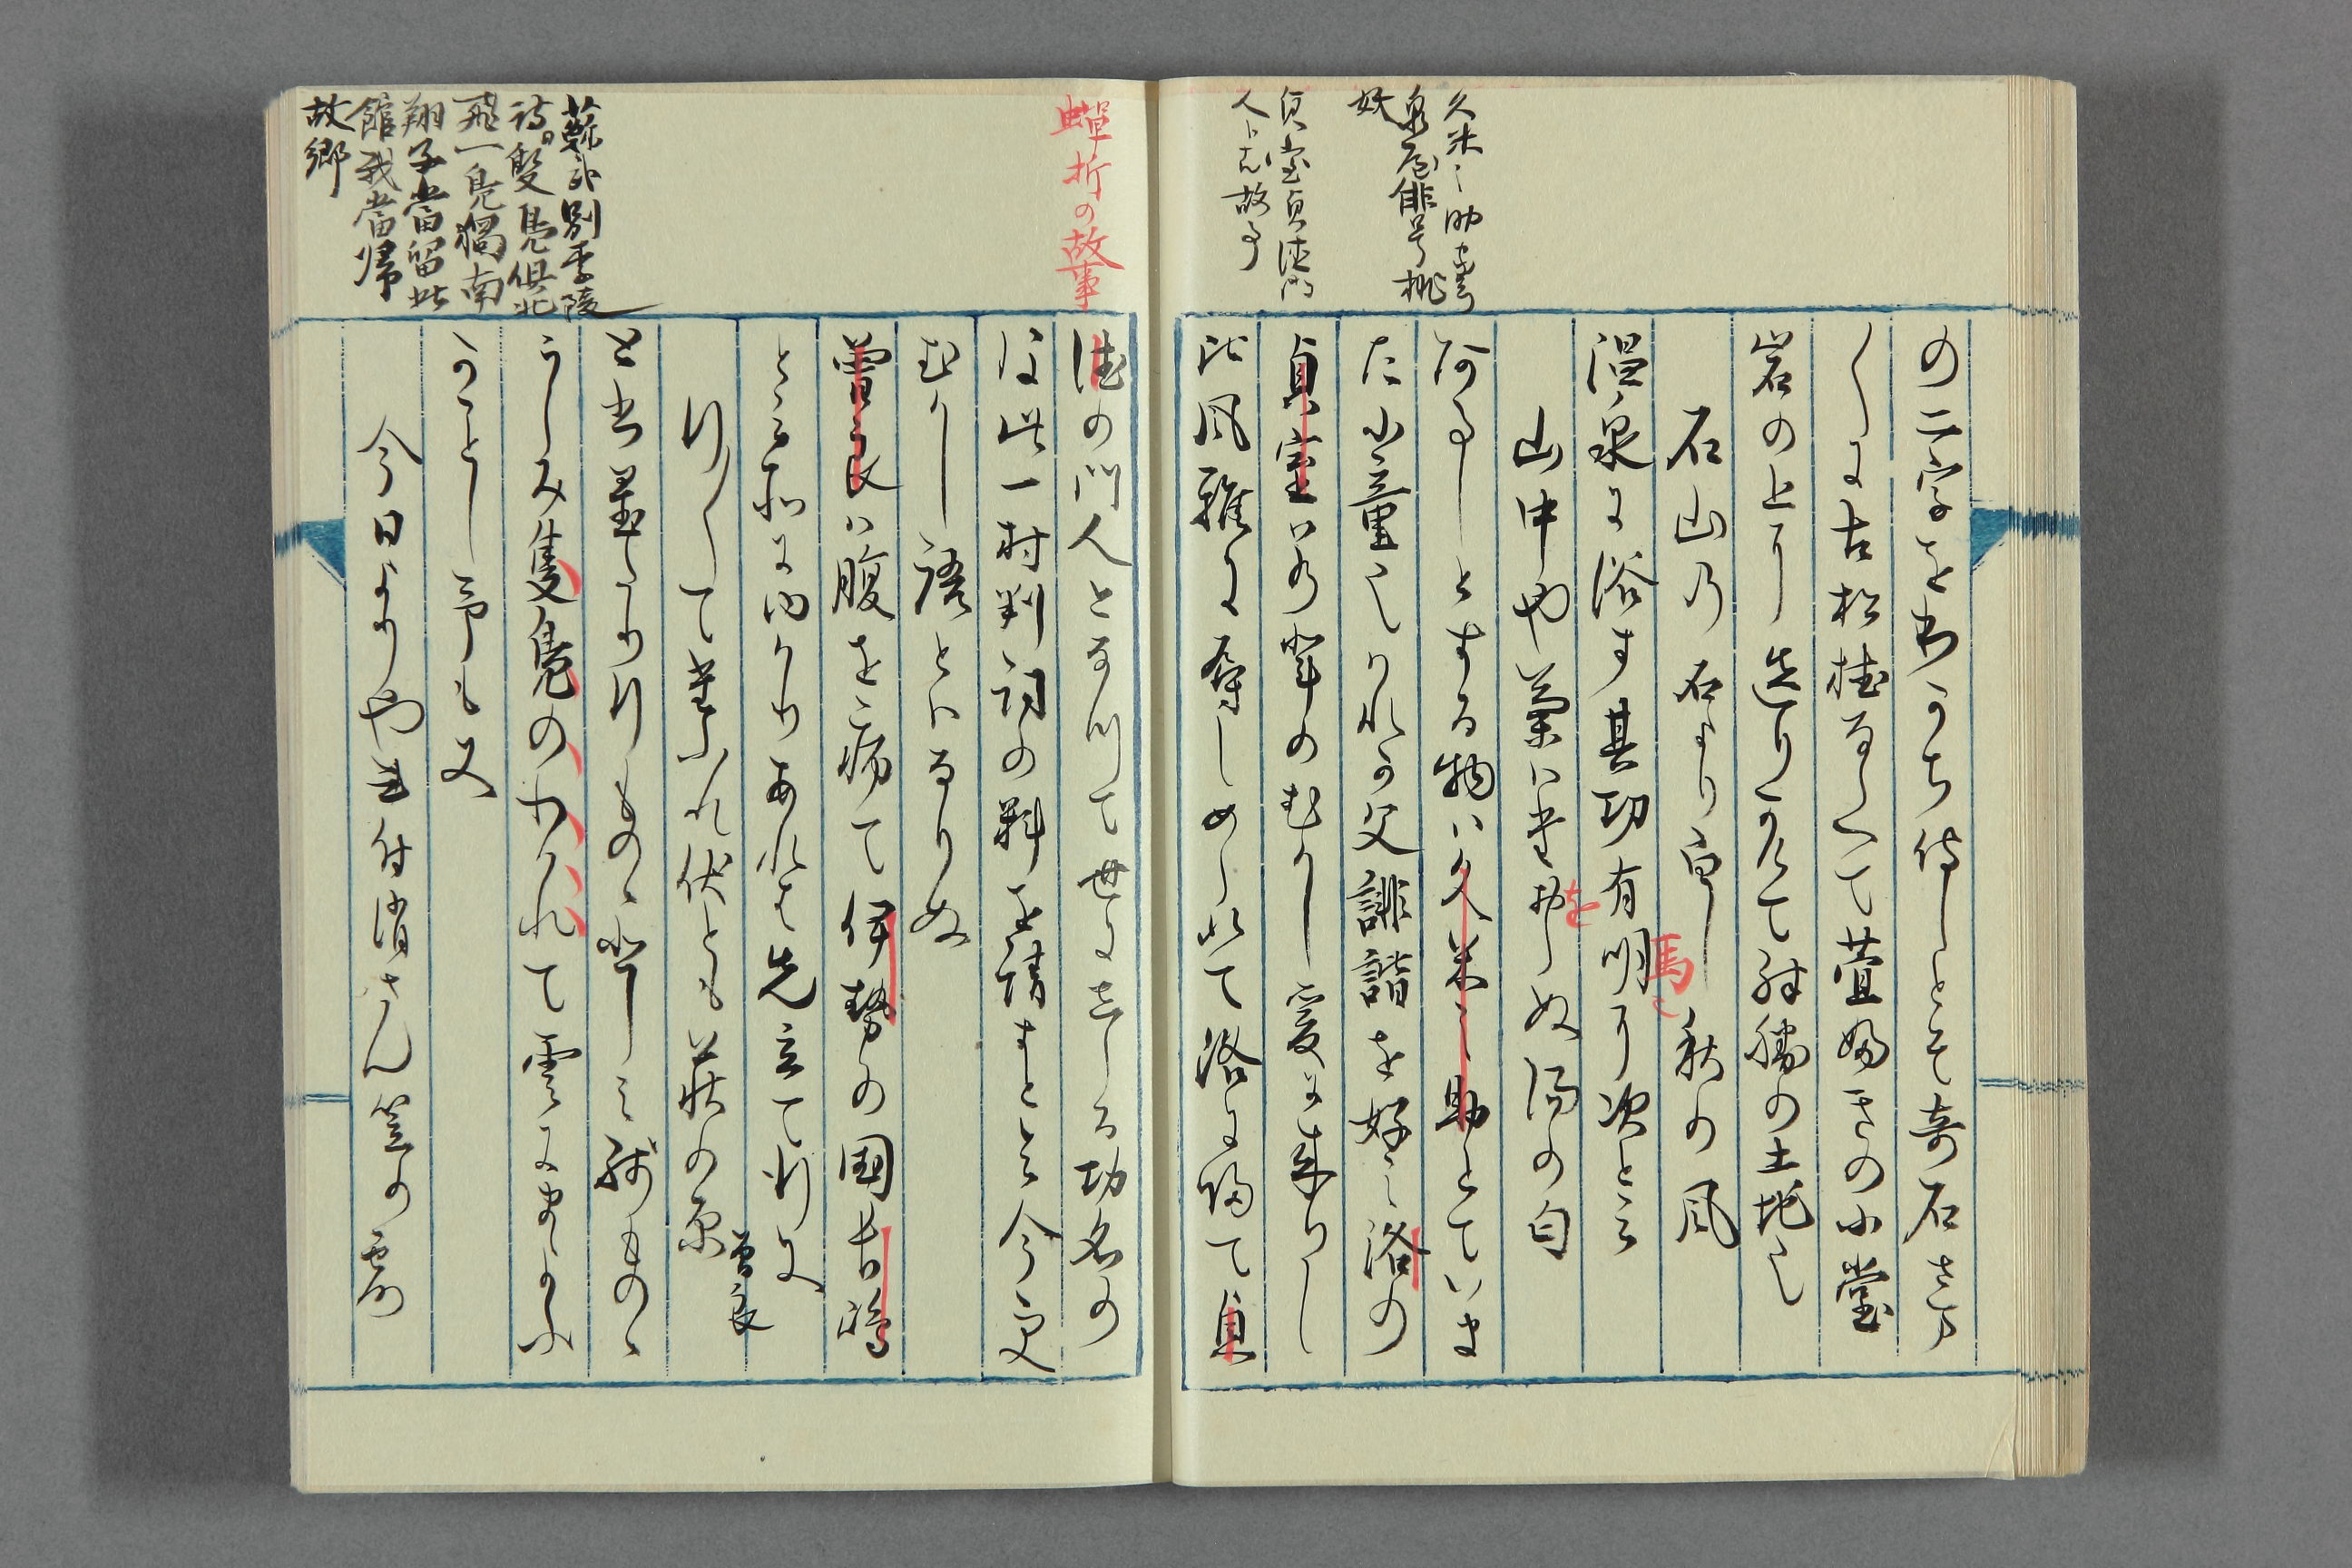 久米之助
泉屋俳号桃
妖
貞室貞徳門
人
の二字をわかち侍しとそ奇石さま
〱に古松植ならへて萱婦きの小堂
岩の上に造りかけて殊勝の土地也
石山の石より白し秋の風
温泉に浴す其功有明に次と云
馬に
山中や菊はたおらぬ湯の匂
を
阿るしとする物は久米之助とていま
た小童也かれか父誹諧を好み洛の
貞室若輩のむかし爰に来りし
比風雅に辱しめられて洛に帰て貞
蝉折の故事
徳の門人となつて世にしらる功名の
後此一村判詞の料を請すと云今更
むかし語とはなりぬ
曽良は腹を病て伊勢の国長嶋
と云所にゆかりあれは先立て行に
行〱てたふれ伏とも萩の原 曽良
と書置たり行ものゝ悲しみ残ものゝ
うらみ隻鳧のわかれて雲にまよふ
かことし予も又
今日よりや書付消さん笠の露
蘇武別李陵
詩曰雙鳧倶北
飛一鳧獨南
翔子當留此
館我當帰
故郷